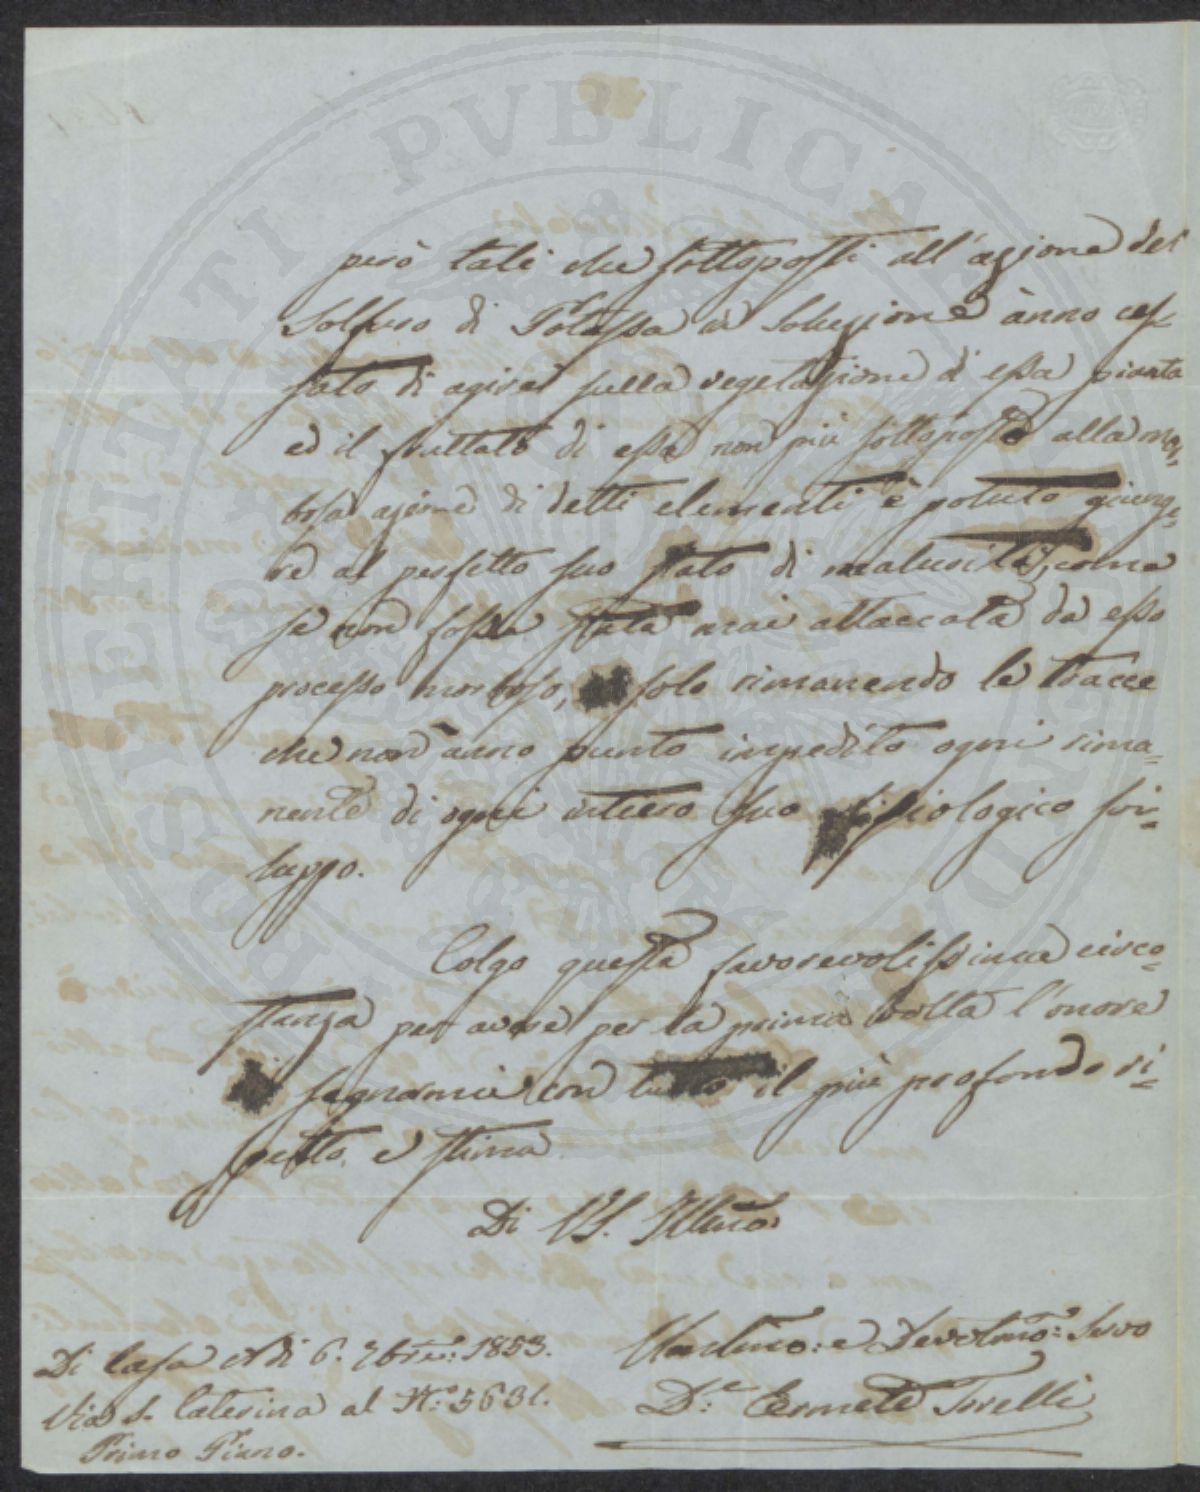 però tali che sottoposti all'azione del
Solfuro di Potassa in Soluzione ànno ces-
sato di agire sulla vegetazione di essa pianta
ed il fruttato di essa non più sottoposto alla mor-
bosa azione di detti elementi è potuto giunge-
re al perfetto suo stato di maturità, come
se non fosse stata mai attaccata da esso
processo morboso, solo rimanendo le tracce
che non ànno punto impedito ogni rima=
nente di ogni intiero suo fisiologico svi=
luppo.
Colgo questa favorevolissima circo=
stanza per avere per la prima volta l'onore
segnarmi con tutto il più profondo ri=
spetto e stima
Di V.S. Illma
Umilmo: e Devotmo: Servo
Dr. Ermete Torelli
Di Casa A dì 6. 9bre: 1853.
Via S. Caterina al N: 5631.
Primo Piano.
PROSPERITATI PVBLICAE